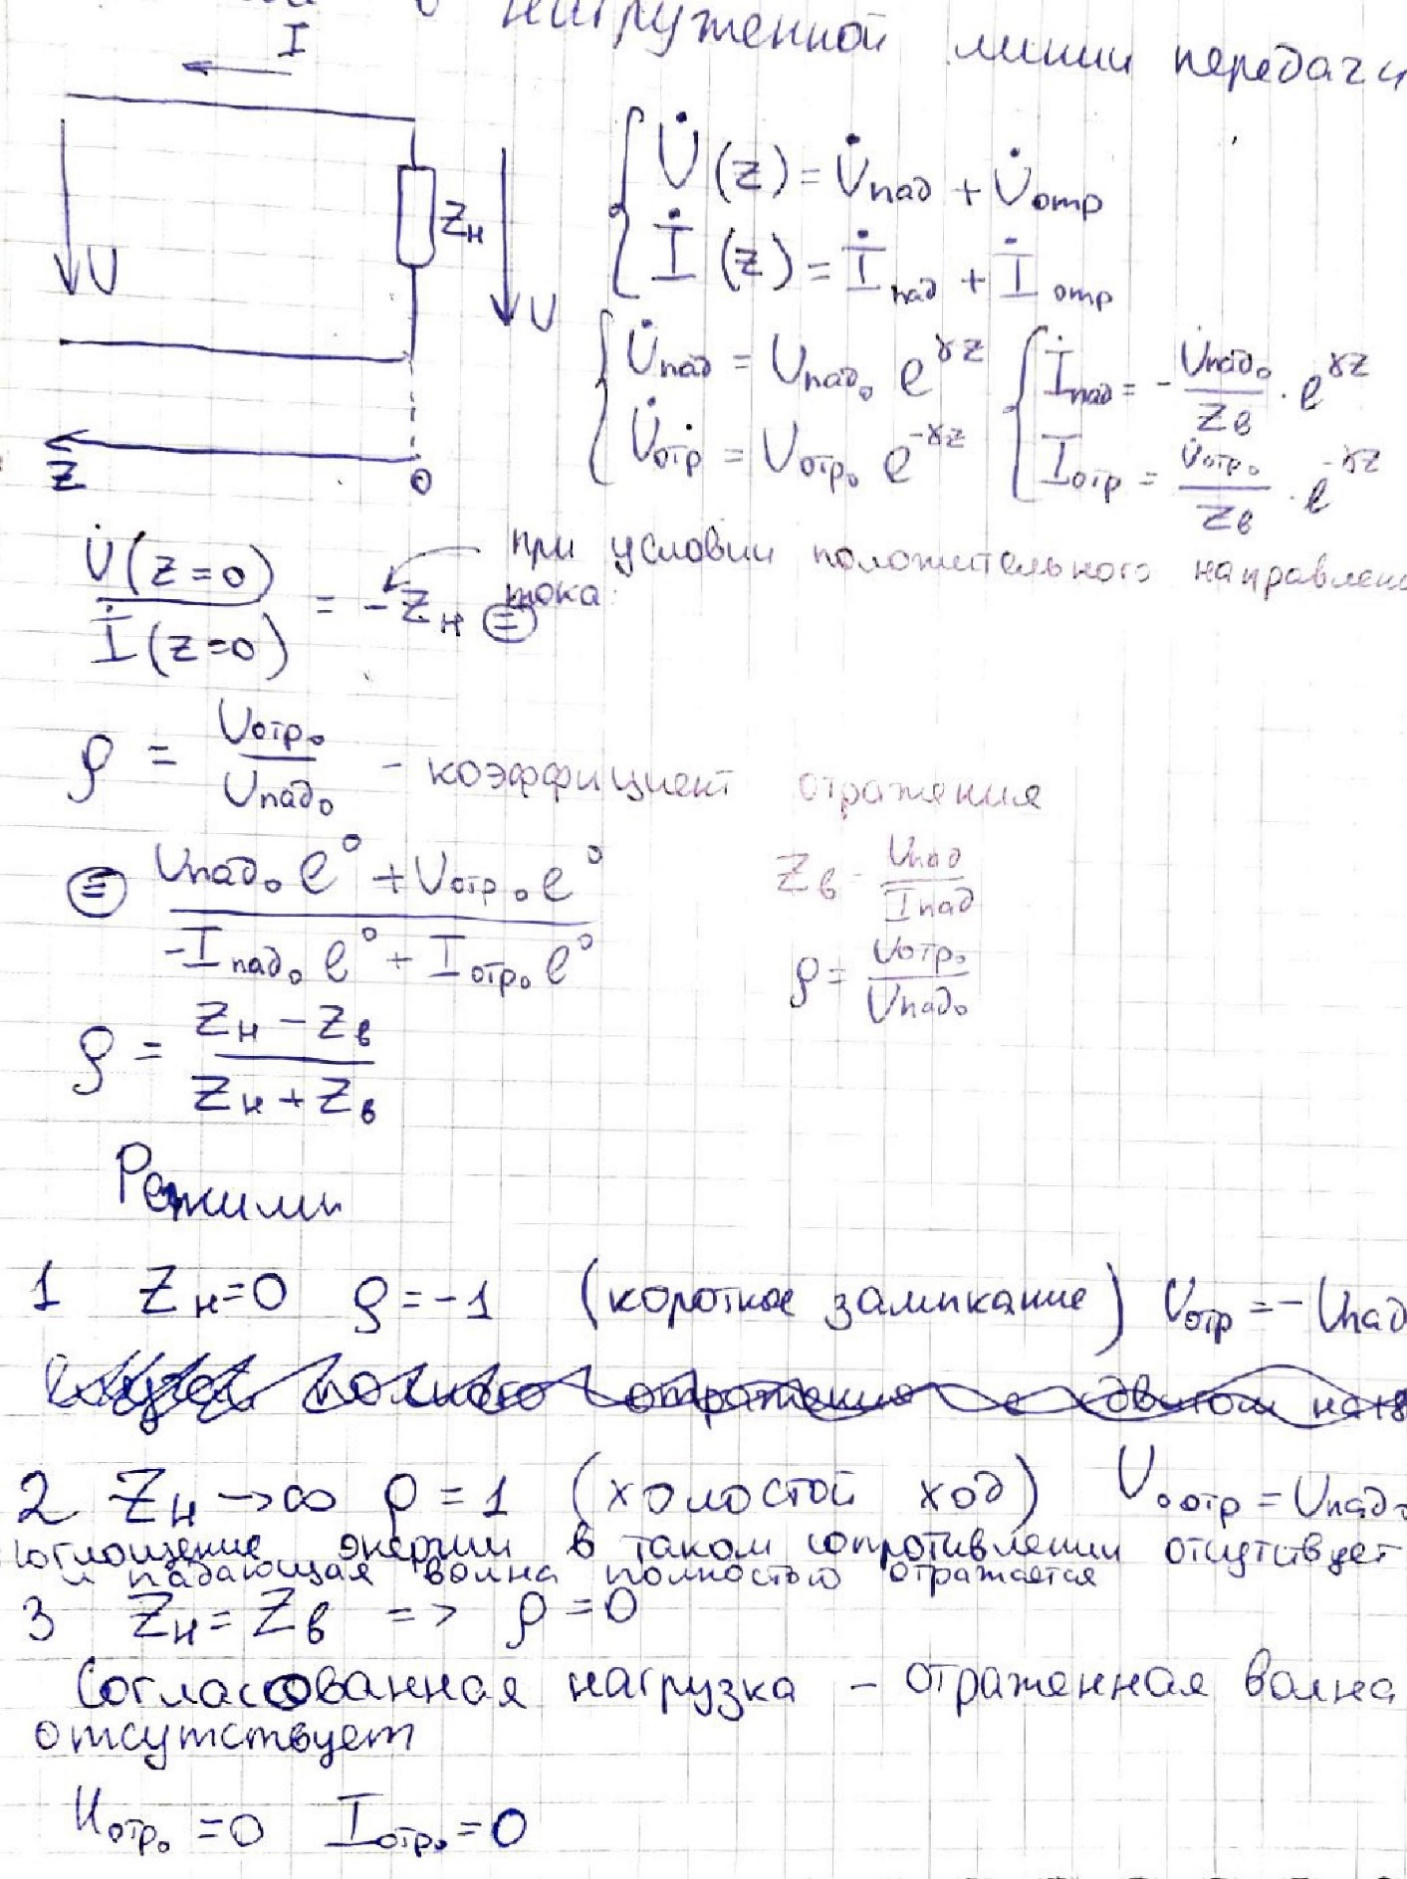 в нагруженной линии передачи
I
U
Zн
U
Z
0
U̇(z) = U̇пад + U̇отр
İ(z) = İпад + İотр
U̇пад = Uпад₀ e^{γz}
U̇отр = Uотр₀ e^{-γz}
İпад = - U̇пад₀/Zв · e^{γz}
Iотр = U̇отр₀/Zв · e^{-γz}
U̇(z=0)/İ(z=0) = -Zн ⊜
при условии положительного
тока
ρ = Uотр₀/Uпад₀ - коэффициент отражения
⊜ (Uпад₀ e⁰ + Uотр₀ e⁰)/(-Iпад₀ e⁰ + Iотр₀ e⁰)
Zв = Uпад/Iпад
ρ = Uотр₀/Uпад₀
ρ = (Zн - Zв)/(Zн + Zв)
Режимы
1 Zн=0 ρ=-1 (короткое замыкание) Uотр = -Uпад
полного отражения с сдвигом на
2 Zн→∞ ρ=1 (холостой ход) U₀отр = Uпад₀
поглощение энергии в таком сопротивлении отсутствует
и падающая волна полностью отражается
3 Zн=Zв => ρ=0
Согласованная нагрузка - отраженная волна
отсутствует
Uотр₀=0 Iотр₀=0